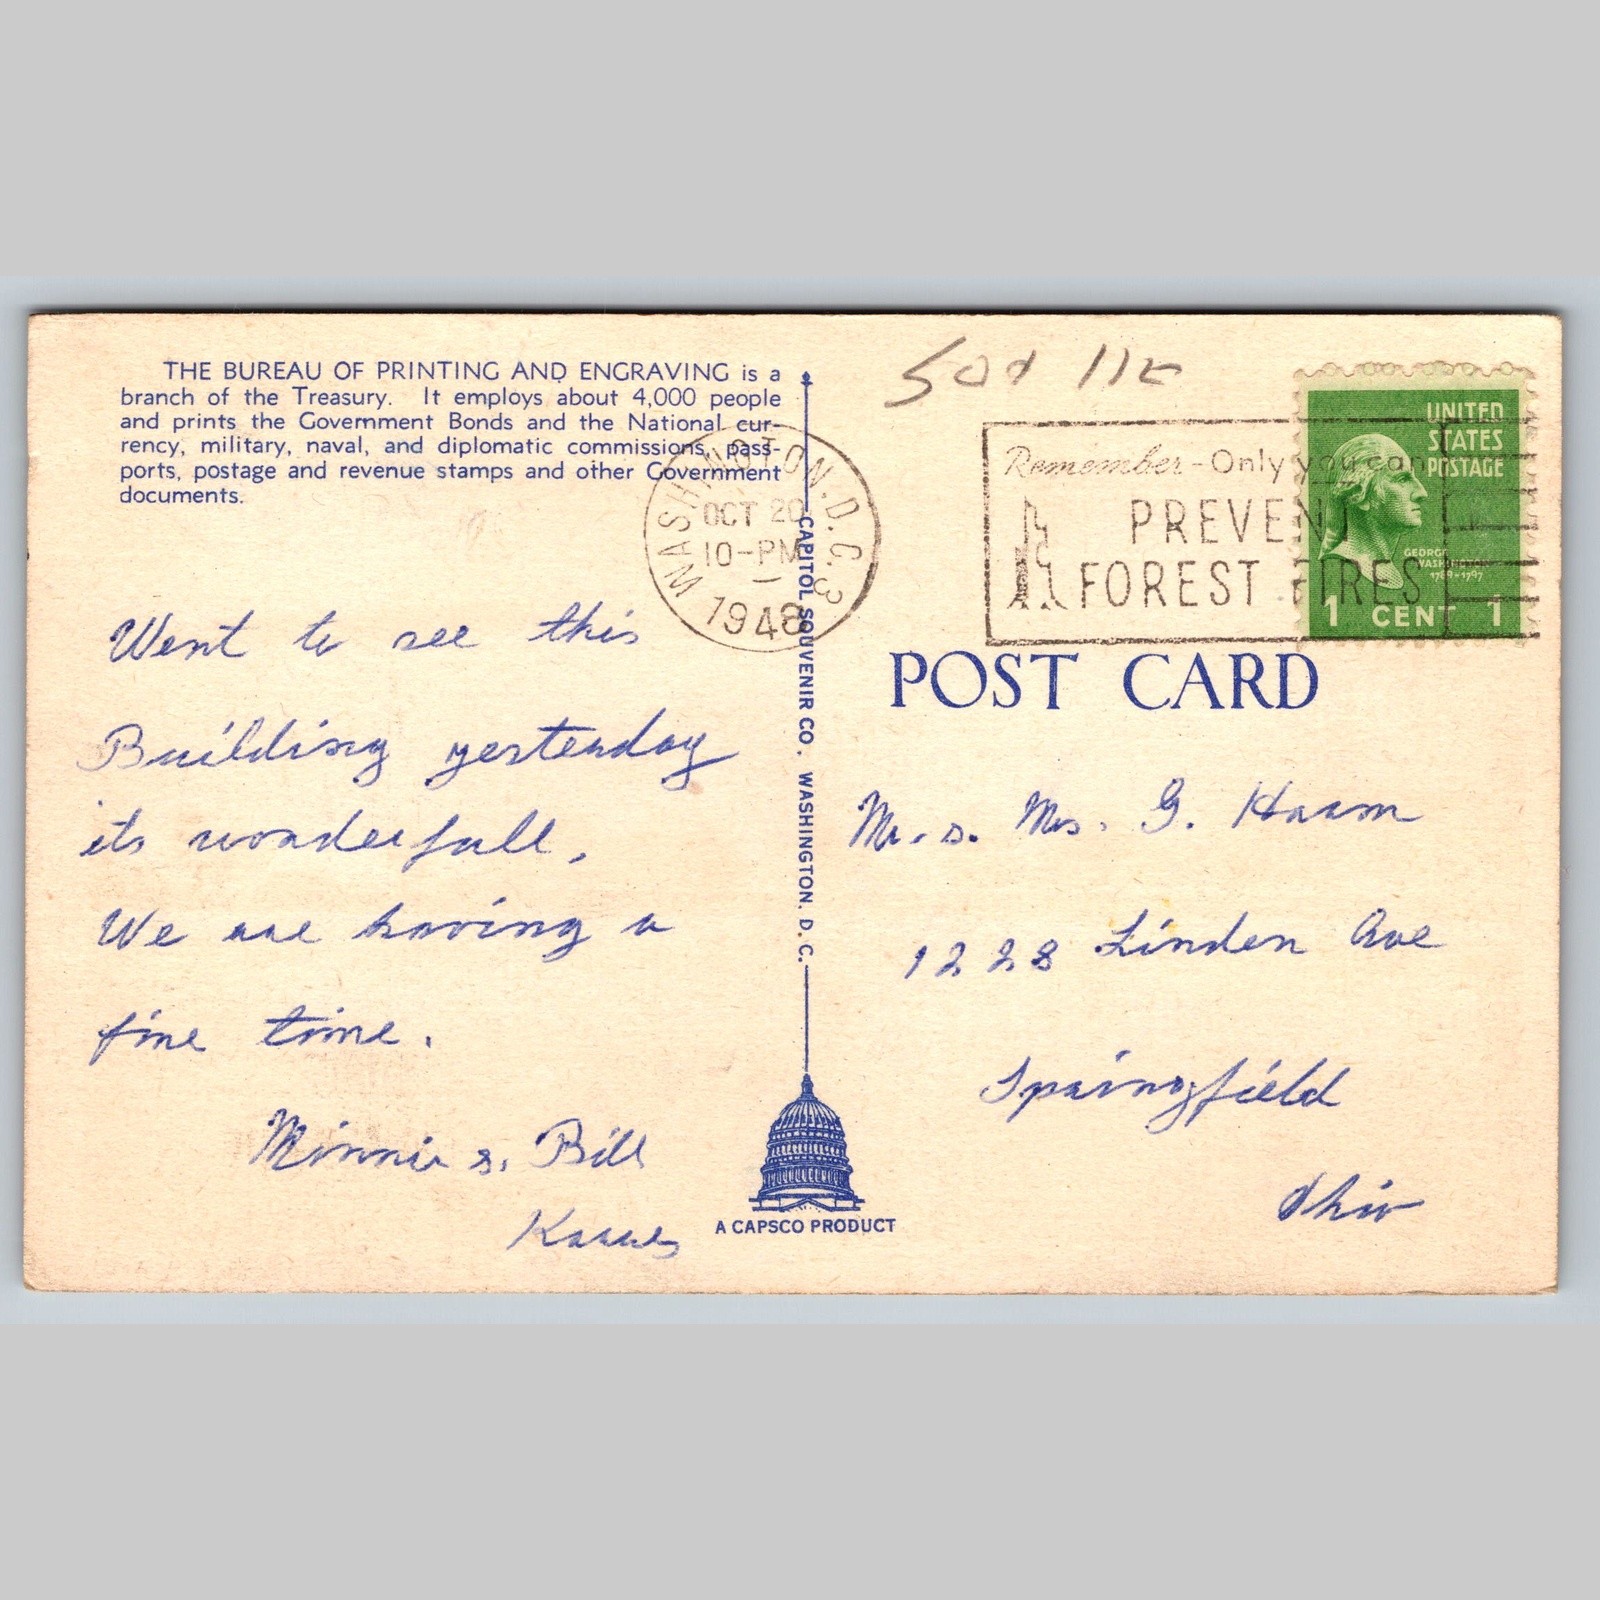 THE BUREAU OF PRINTING AND ENGRAVING is a
branch of the Treasury. It employs about 4,000 people
and prints the Government Bonds and the National cur-
rency, military, naval, and diplomatic commissions, pass-
ports, postage and revenue stamps and other Government
documents.
WASHINGTON, D.C. 3
OCT 20
10-PM
1
1948
Remember - Only you can
PREVENT
FOREST FIRES
UNITED
STATES
POSTAGE
GEORGE
WASHINGTON
1789-1797
1 CENT 1
POST CARD
CAPITOL SOUVENIR CO. WASHINGTON. D. C.
A CAPSCO PRODUCT
Went to see this
Building yesterday
its wonderfull,
We are having a
fine time.
Minnie &. Bill
Mr. &. Mrs. G.
1228 Linden Ave
Springfield
Ohio